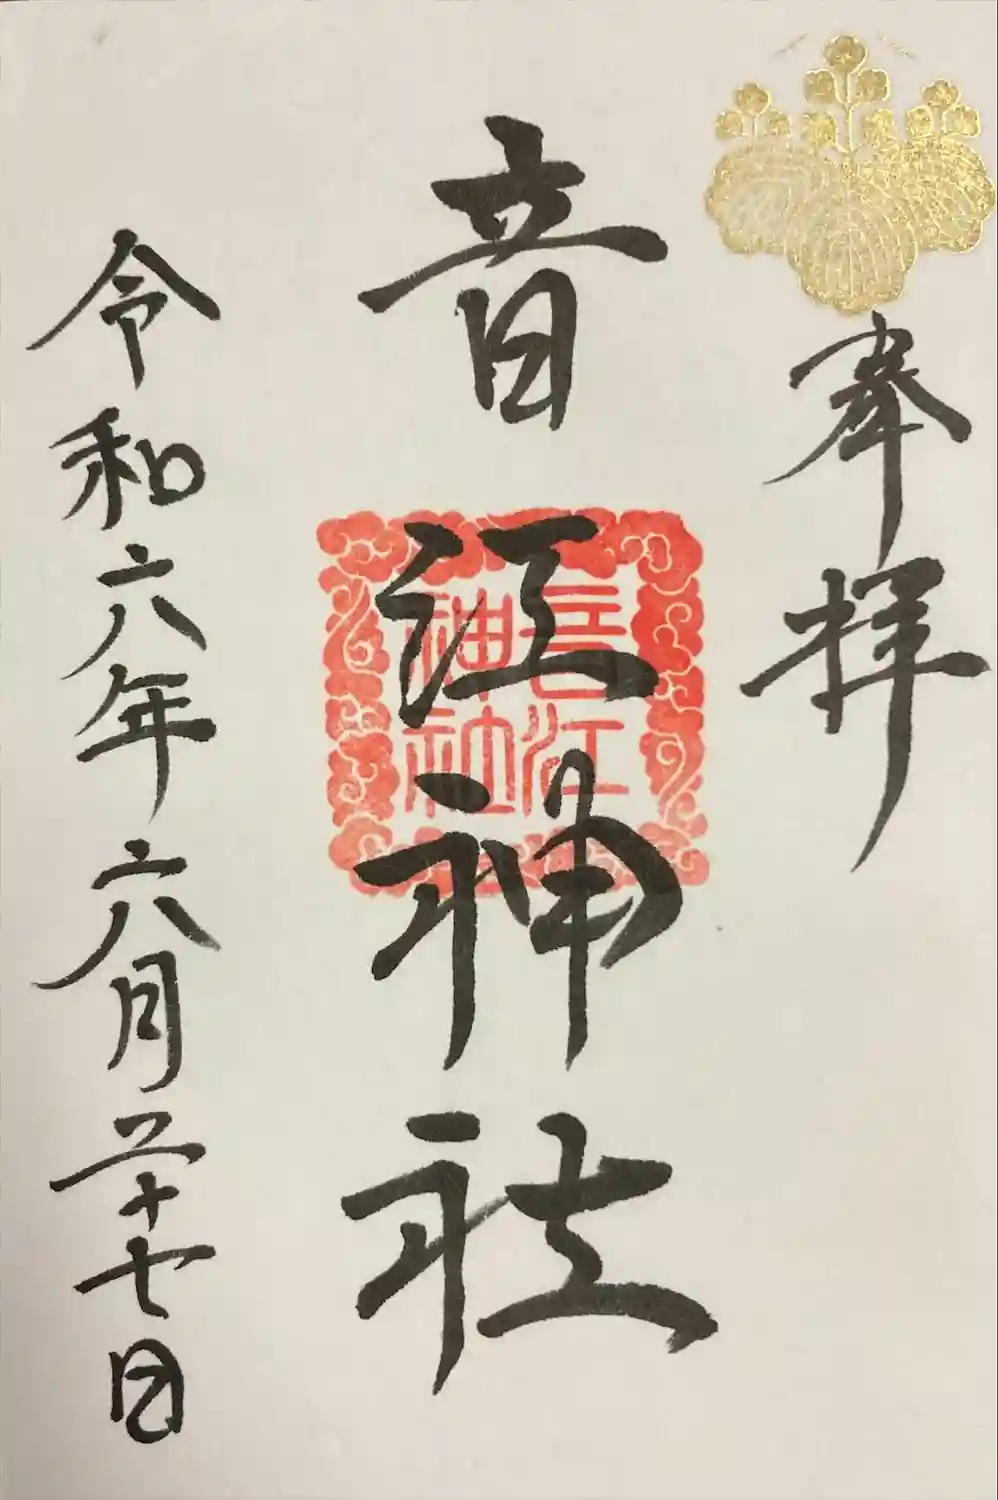 奉拝
音江神社
音江
神社
令和六年六月二十七日